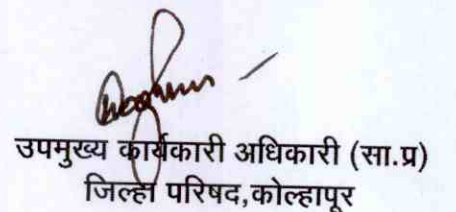 उपमुख्य कार्यकारी अधिकारी (सा.प्र)
जिल्हा परिषद,कोल्हापूर